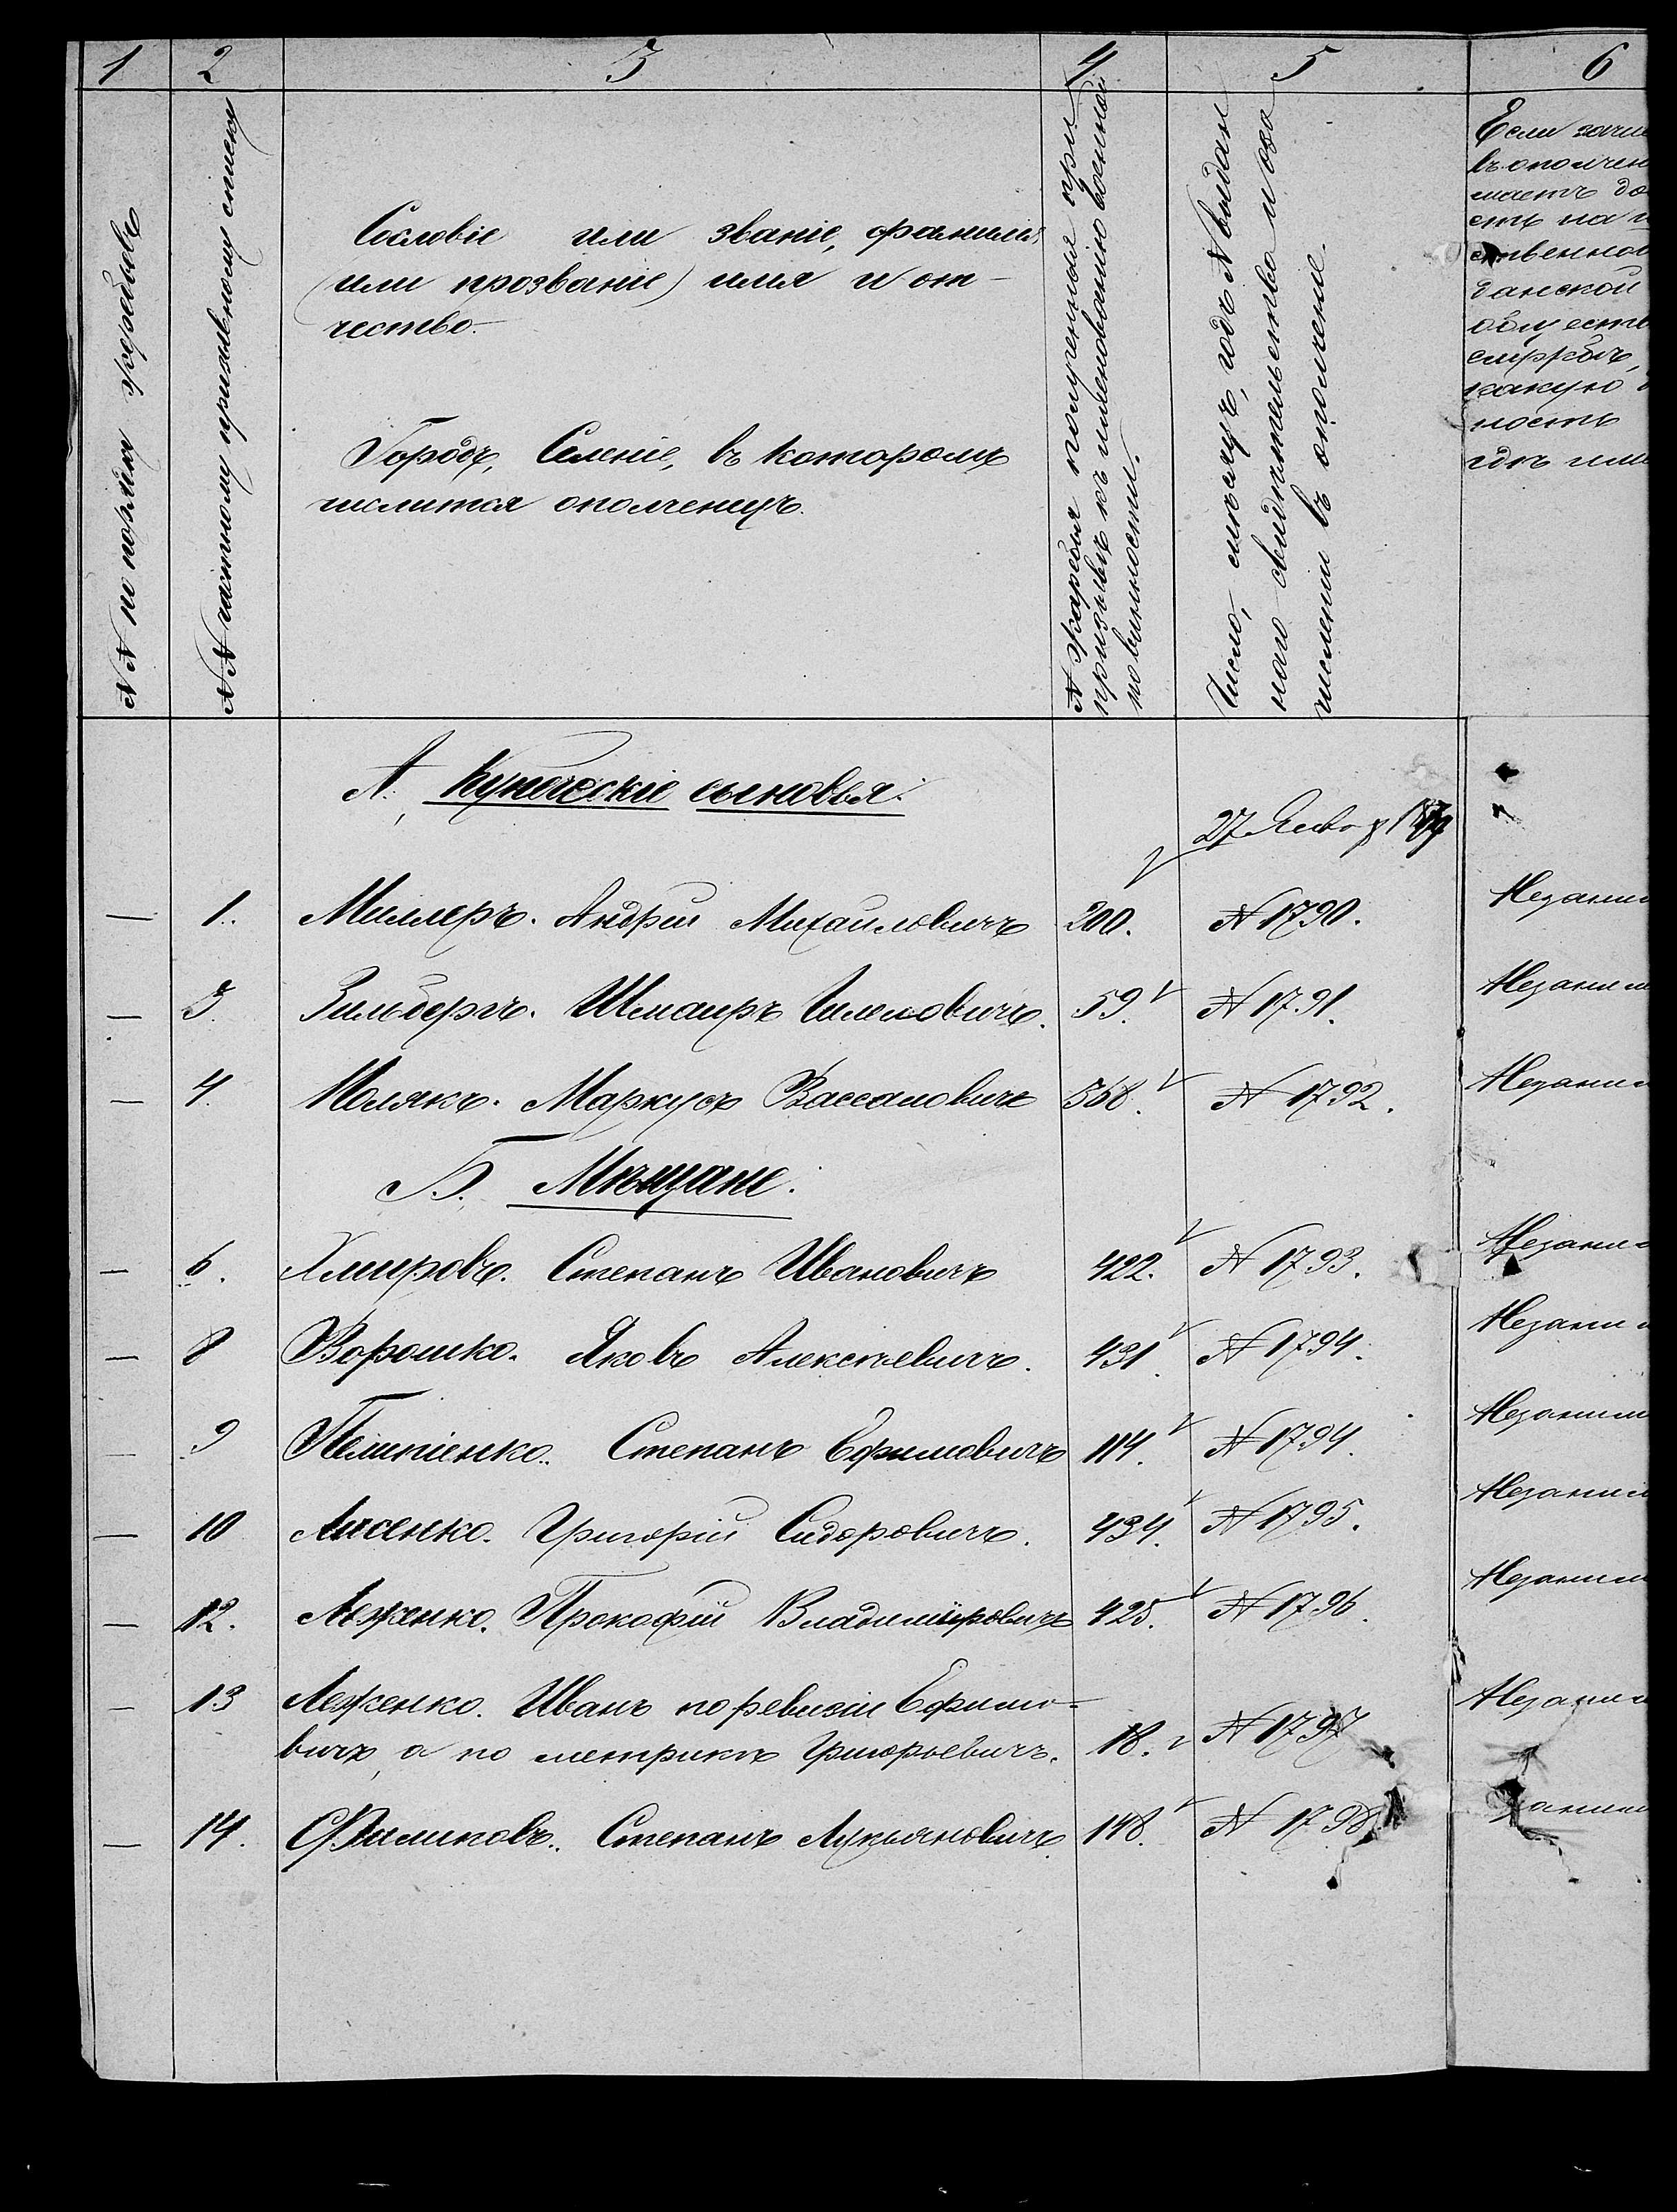 1 2 3 4 5 6
№№ по порядку жеребьевъ
№№ частному призывному списку
Сословіе или званіе, фамилія
(или прозваніе) имя и от-
чество.
Городъ, Селеніе, въ которомъ
числится ополченецъ.
№ жеребья полученный при
призывѣ къ исполненію воинской
повинности.
Число, мѣсяцъ, годъ и № выдан
наго свидѣтельства и о за
численіи въ ополченіе.
Если
въ ополчен
маетъ до
сть на
ственной
данской
обществ
службѣ,
какую
ность
гдѣ
А. Купеческіе сыновья.
27 Января 1879
— 1. Миллеръ. Андрей Михайловичъ 200. № 1790. Незаним
— 3. Зильберъ. Шмаиръ Шлемовичъ. 59. № 1791. Незаним
— 4. Полякъ. Маркусъ Вассановичъ 368. № 1792. Незаним
Б. Мѣщане.
— 6. Хмировъ. Степанъ Ивановичъ 422. № 1793. Незаним
— 8 Ворошко. Яковъ Алексѣевичъ. 431. № 1794. Незаним
— 9 Степанъ Ефимовичъ 114. № 1794. Незаним
— 10 Лисенко. Григорій Сидоровичъ. 434. № 1795. Незаним
— 12. Леженко. Прокофій Владиміровичъ 425. № 1796. Незаним
— 13 Леженко. Иванъ по ревизіи Ефимо-
вичъ, а по метрикѣ Григорьевичъ. 18. № 1797 Незаним
— 14. Филиповъ. Степанъ Лукьяновичъ. 148. № 1798 заним